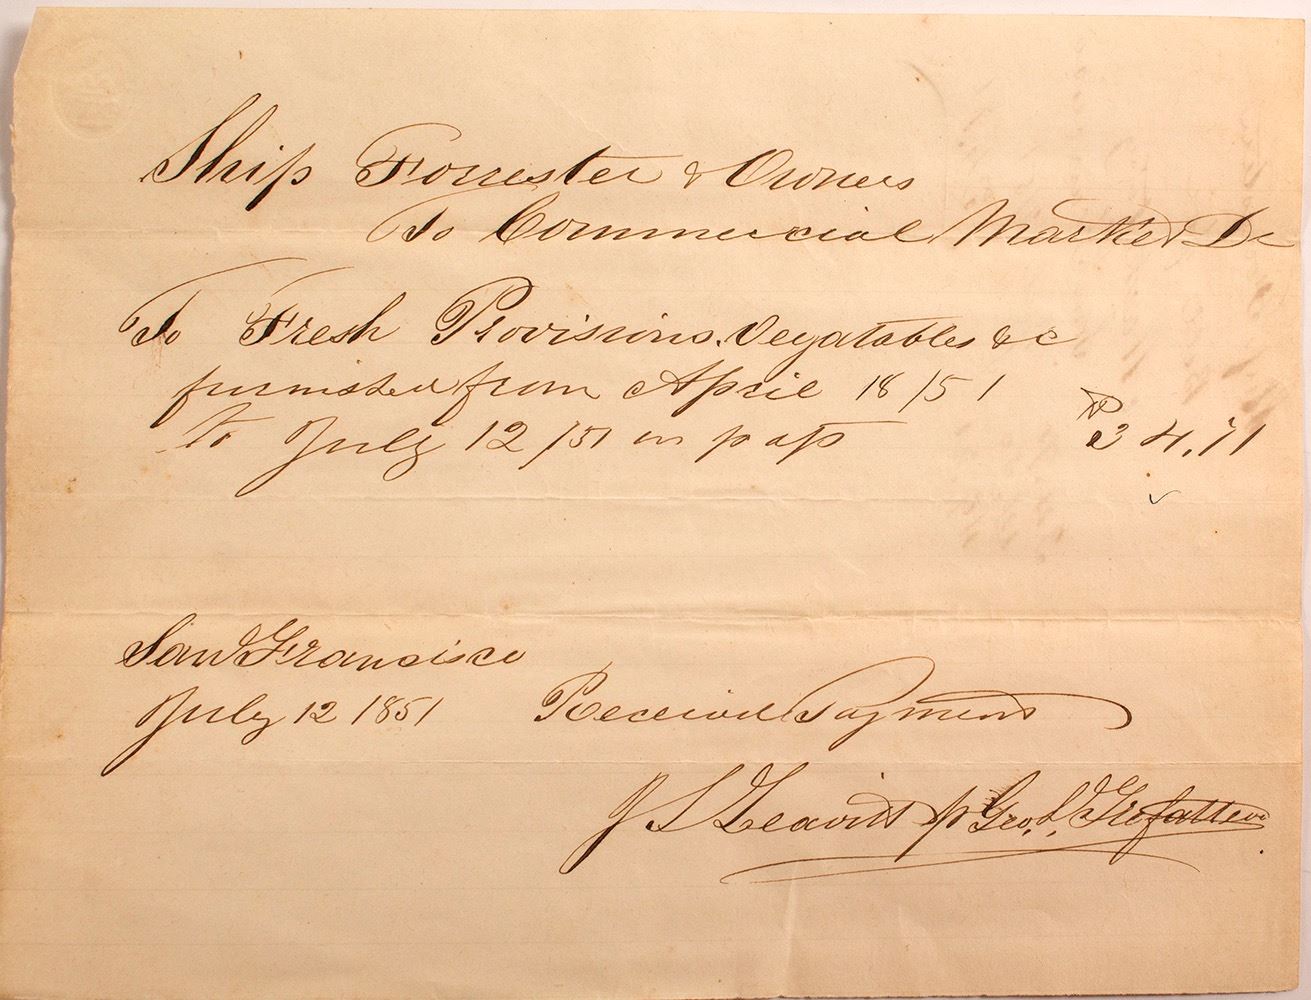 Ship Forrester & Owners
To Commercial Market Dr
To Fresh Provissions. Vegatables &c
furnished from April 18/51
to July 12/51 as p a/p
$34.71
San Francisco
July 12 1851 Received Payment
J S Leavitt p Geo.